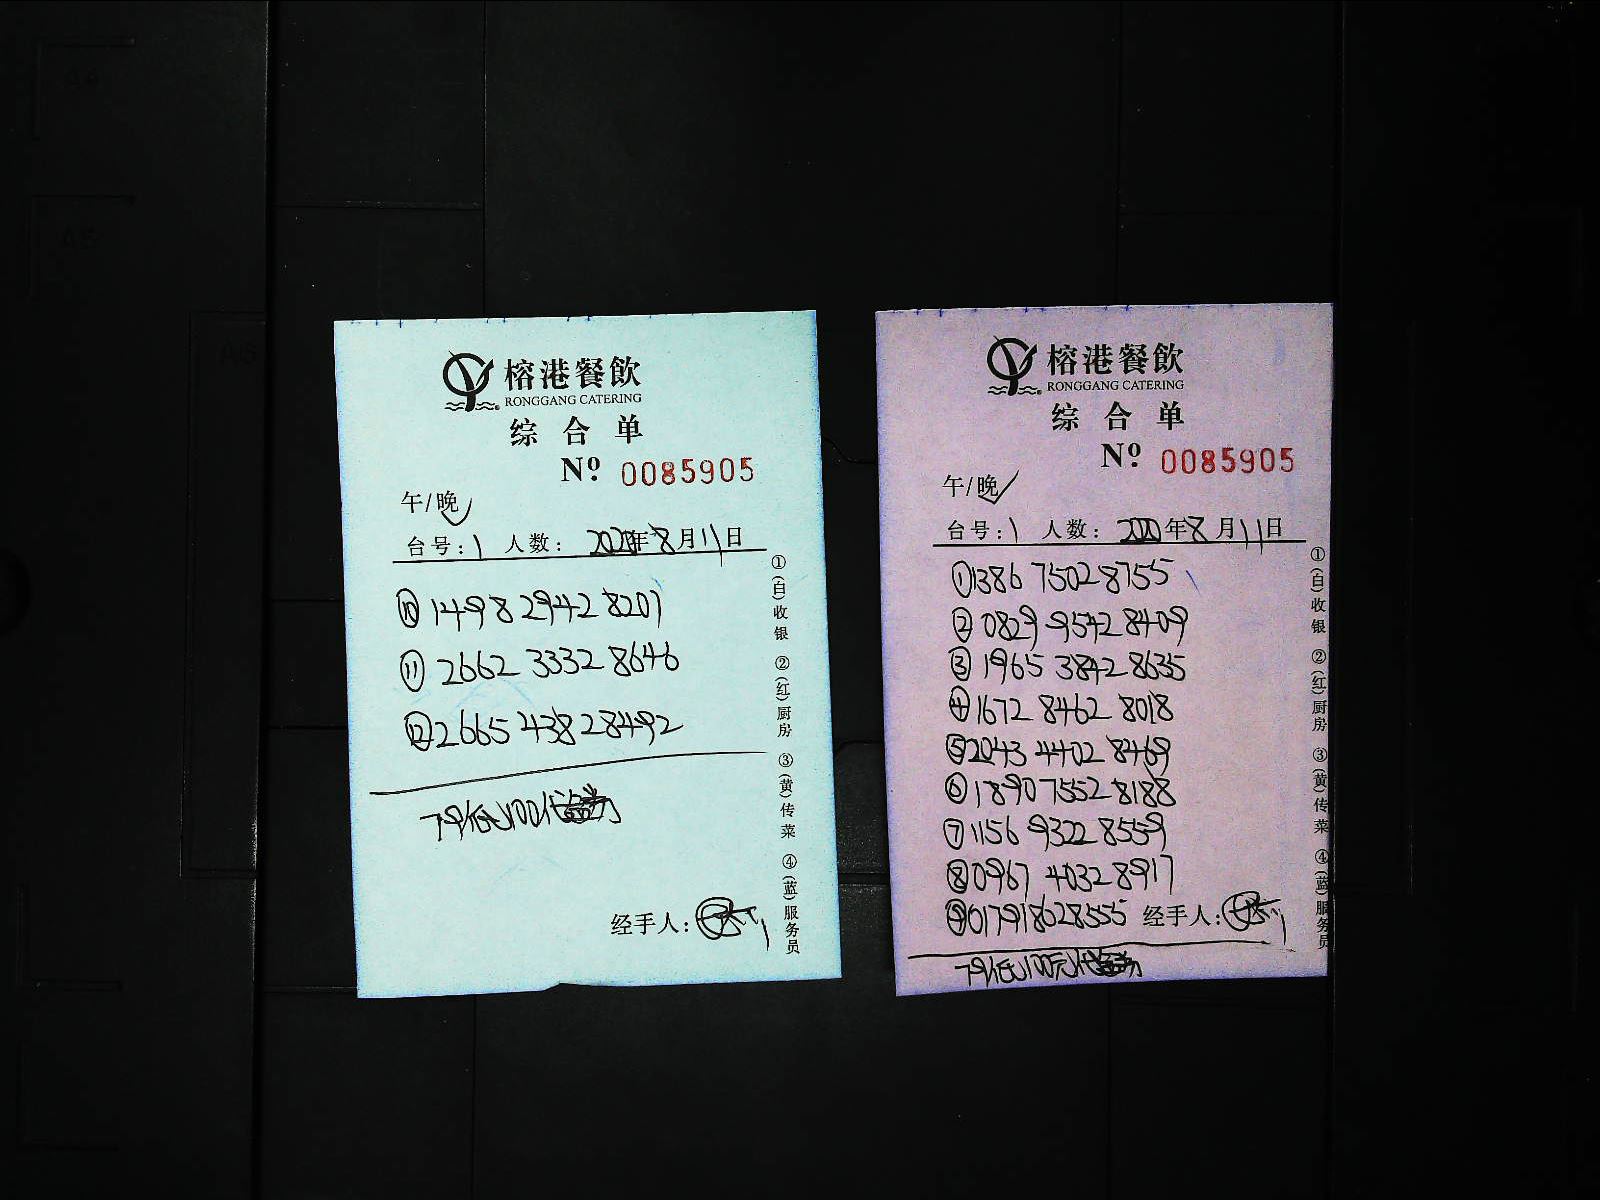 榕港餐飲
RONGGANG CATERING
综合单
Nº 0085905
午/晚
台号:1 人数: 2020年8月11日
⑩ 1498 2942 8201
⑪ 2662 3332 8646
⑫ 2665 4382 8492
79抵100代
经手人:
①(白)收银 ②(红)厨房 ③(黄)传菜 ④(蓝)服务员
榕港餐飲
RONGGANG CATERING
综合单
Nº 0085905
午/晚
台号:1 人数: 2020年8月11日
① 1386 7502 8755
② 0829 9542 8409
③ 1965 3842 8635
④ 1672 8462 8018
⑤ 2043 4402 8469
⑥ 1890 7552 8188
⑦ 1156 9322 8559
⑧ 0967 4032 8917
⑨ 0179 1802 8555 经手人:
79抵100元代
①(白)收银 ②(红)厨房 ③(黄)传菜 ④(蓝)服务员